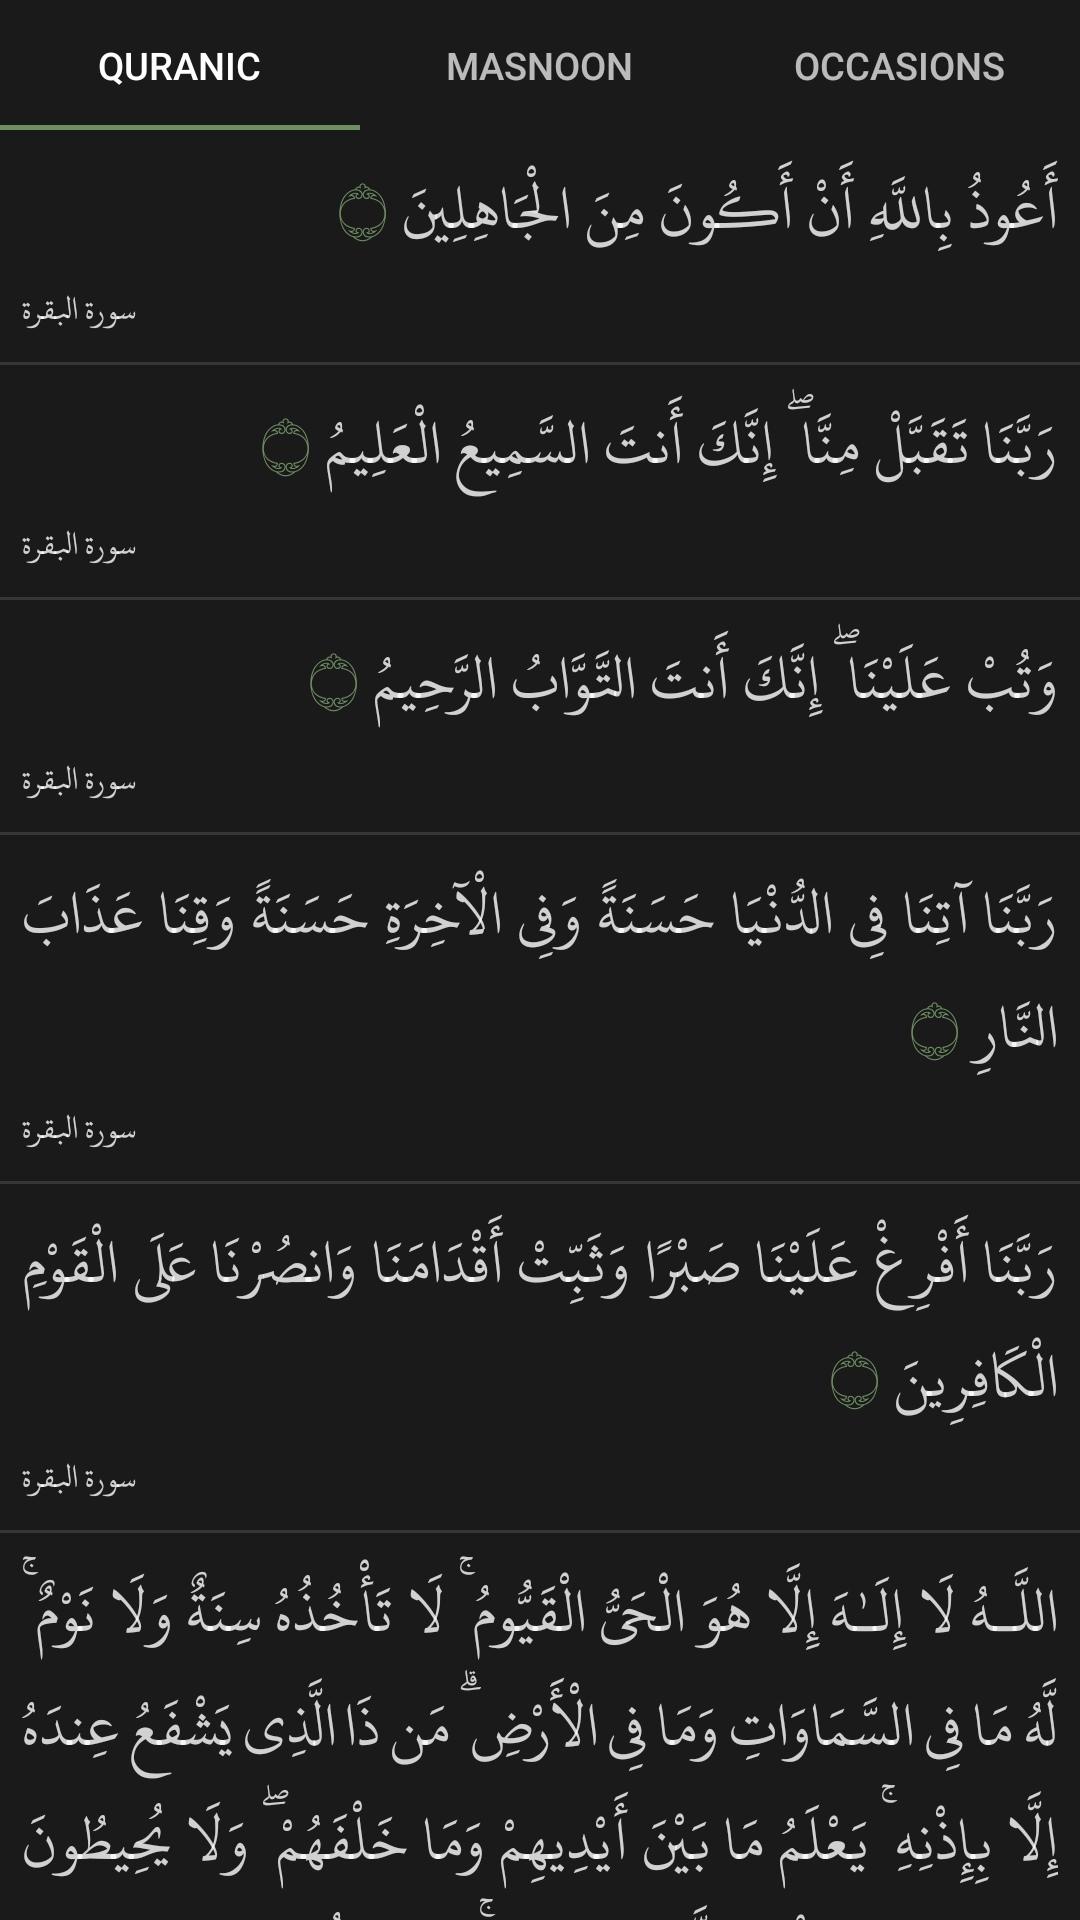 QURANIC
MASNOON
OCCASIONS
أَعُوذُ بِاللَّهِ أَنْ أَكُونَ مِنَ الْجَاهِلِينَ ۝
سورة البقرة
رَبَّنَا تَقَبَّلْ مِنَّا ۖ إِنَّكَ أَنتَ السَّمِيعُ الْعَلِيمُ ۝
سورة البقرة
وَتُبْ عَلَيْنَا ۖ إِنَّكَ أَنتَ التَّوَّابُ الرَّحِيمُ ۝
سورة البقرة
رَبَّنَا آتِنَا فِي الدُّنْيَا حَسَنَةً وَفِي الْآخِرَةِ حَسَنَةً وَقِنَا عَذَابَ
النَّارِ ۝
سورة البقرة
رَبَّنَا أَفْرِغْ عَلَيْنَا صَبْرًا وَثَبِّتْ أَقْدَامَنَا وَانصُرْنَا عَلَى الْقَوْمِ
الْكَافِرِينَ ۝
سورة البقرة
اللَّـهُ لَا إِلَـٰهَ إِلَّا هُوَ الْحَيُّ الْقَيُّومُ ۚ لَا تَأْخُذُهُ سِنَةٌ وَلَا نَوْمٌ ۚ
لَّهُ مَا فِي السَّمَاوَاتِ وَمَا فِي الْأَرْضِ ۗ مَن ذَا الَّذِي يَشْفَعُ عِندَهُ
إِلَّا بِإِذْنِهِ ۚ يَعْلَمُ مَا بَيْنَ أَيْدِيهِمْ وَمَا خَلْفَهُمْ ۖ وَلَا يُحِيطُونَ